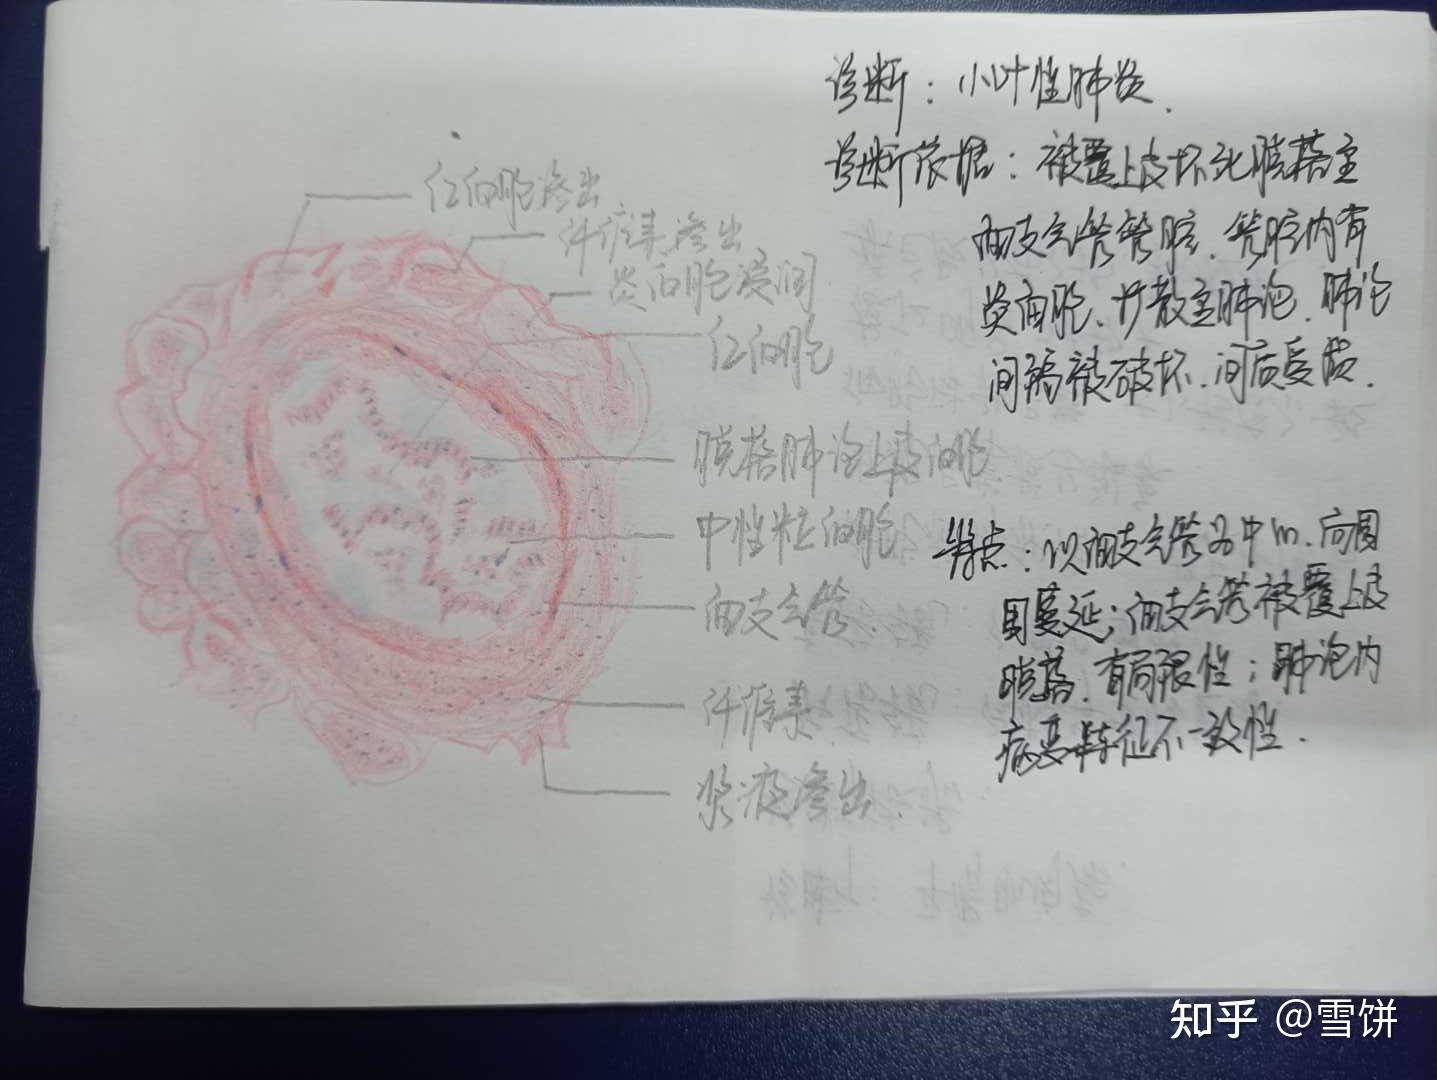 诊断：小叶性肺炎.
诊断依据：被覆上皮坏死脱落至
细支气管管腔、管腔内有
炎细胞、扩散至肺泡、肺泡
间隔被破坏、间质受损.
红细胞渗出
纤维素渗出
炎细胞浸润
红细胞
脱落肺泡上皮细胞
中性粒细胞
细支气管.
纤维素
浆液渗出
特点：以细支气管为中心、向周
围蔓延；细支气管被覆上皮
脱落、有局限性；肺泡内
病变特征不一致性.
知乎 @雪饼